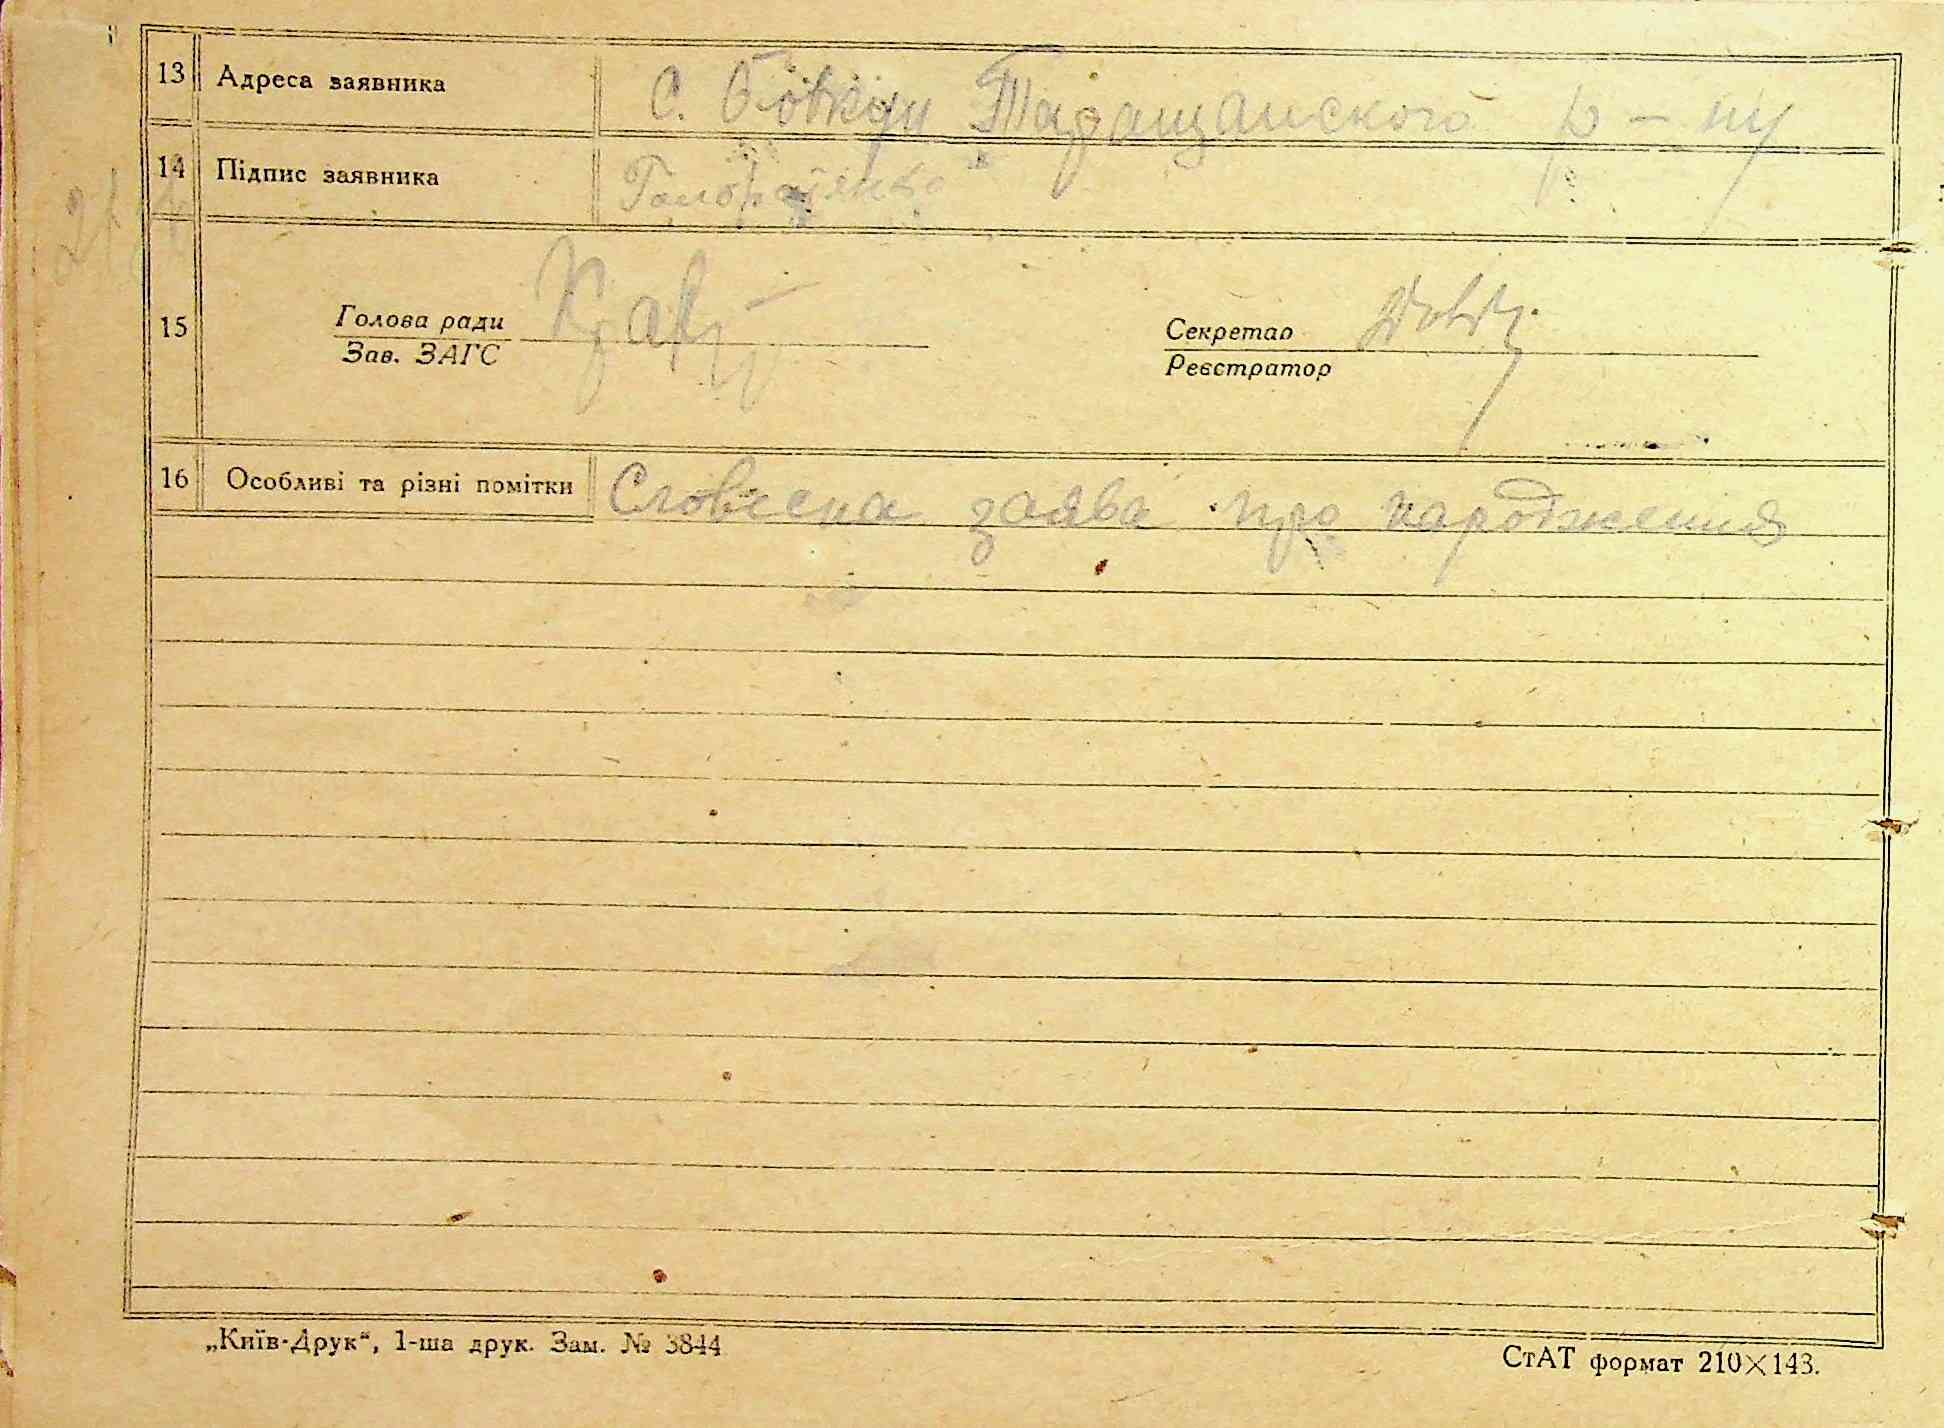 13 Адреса заявника С. Бовкун Таращанского р-ну
14 Підпис заявника
15 Голова ради Секретар
Зав. ЗАГС Реєстратор
16 Особливі та різні помітки Словесна заява про народження
„Київ-Друк“, 1-ша друк. Зам. № 3844 СтАТ формат 210×143.